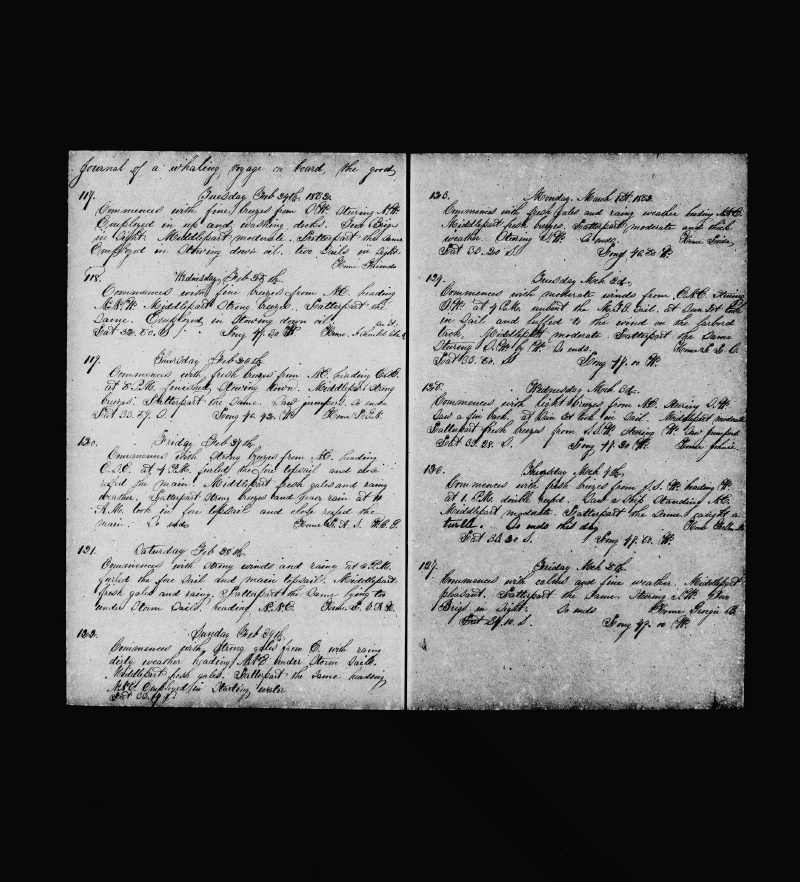 Journal of a whaling voyage on board the good
117. Tuesday Feb 24th
Commences with fine breezes from S.W. stearing N.W.
Employed in up and washing decks. Two Brigs
in sight. Middlepart moderate. Latterpart the same
Employed in stowing down oil. two Sails in sight.
118. Wednesday Feb 25th
Commences with fine breezes from N.E. heading
N.N.W. Middlepart strong breezes. Latterpart the
same. Employed in stowing down oil
Lat Long 47.30 W.
Thursday Feb 26th
Commences with fresh breezes from N.E. heading
at 8 P.M. finished stowing down. Middlepart strong
breezes. Latterpart the same. Saw So ends
Lat 33.29. S. Long W.
Friday Feb 27th
Commences with strong breezes from N.E. heading
E.S.E. at 4 P.M. furled the fore topsail and close
reefed the main. Middlepart fresh gales and rainy
weather. Latterpart strong breezes and rain at 10
A.M. took in fore topsail and close reefed the
main. So ends
121. Saturday Feb 28th
Commences with strong winds and rainy at 4 P.M.
furled the fore sail and main topsail. Middlepart
fresh gales and rainy. Latterpart the same lying to
under storm sails. heading N.N.E.
122. Sunday Feb 29th
Commences with strong gales from E. with rainy
dirty weather heading N.N.E under storm sails.
Middlepart fresh gales. Latterpart the same heading
N.N.E. Employed in starting water
Lat 33.
123. Monday. March 1st.
Commences with fresh gales and rainy weather heading
Middlepart fresh breezes. Latterpart moderate and thick
weather. Stearing S.W. So ends
Lat 33.20 S. Long W.
124. Tuesday Mch 2d.
Commences with moderate winds from E.N.E. stearing
S.W. at 4 P.M. unbent the Sail. at Sun Set took
in sail and luffed to the wind on the larbord
tack. Middlepart moderate. Latterpart the same
stearing S.W. by W. So ends.
Lat 33. S. Long 47. 00 W.
125. Wednesday Mch 3d.
Commences with light breezes from N.E. stearing S.W.
Saw a fin back. at Sun Set took in sail. Middlepart moderate
Latterpart fresh breezes from stearing W. Saw
Lat 33.28. S. Long 47.30 W.
Thursday Mch 4th.
Commences with fresh breezes from heading W
at 6 P.M. double reefed. Saw a ship standing N.E.
Middlepart moderate. Latterpart the same caught a
turtle. So ends this day
Lat 33.20 S. Long 47. W.
127. Friday Mch 5th
Commences with calms and fine weather. Middlepart
pleasant. Latterpart the same. Stearing S.W.
Brigs in sight. So ends
Lat 34.10. S. Long 47. 00 W.